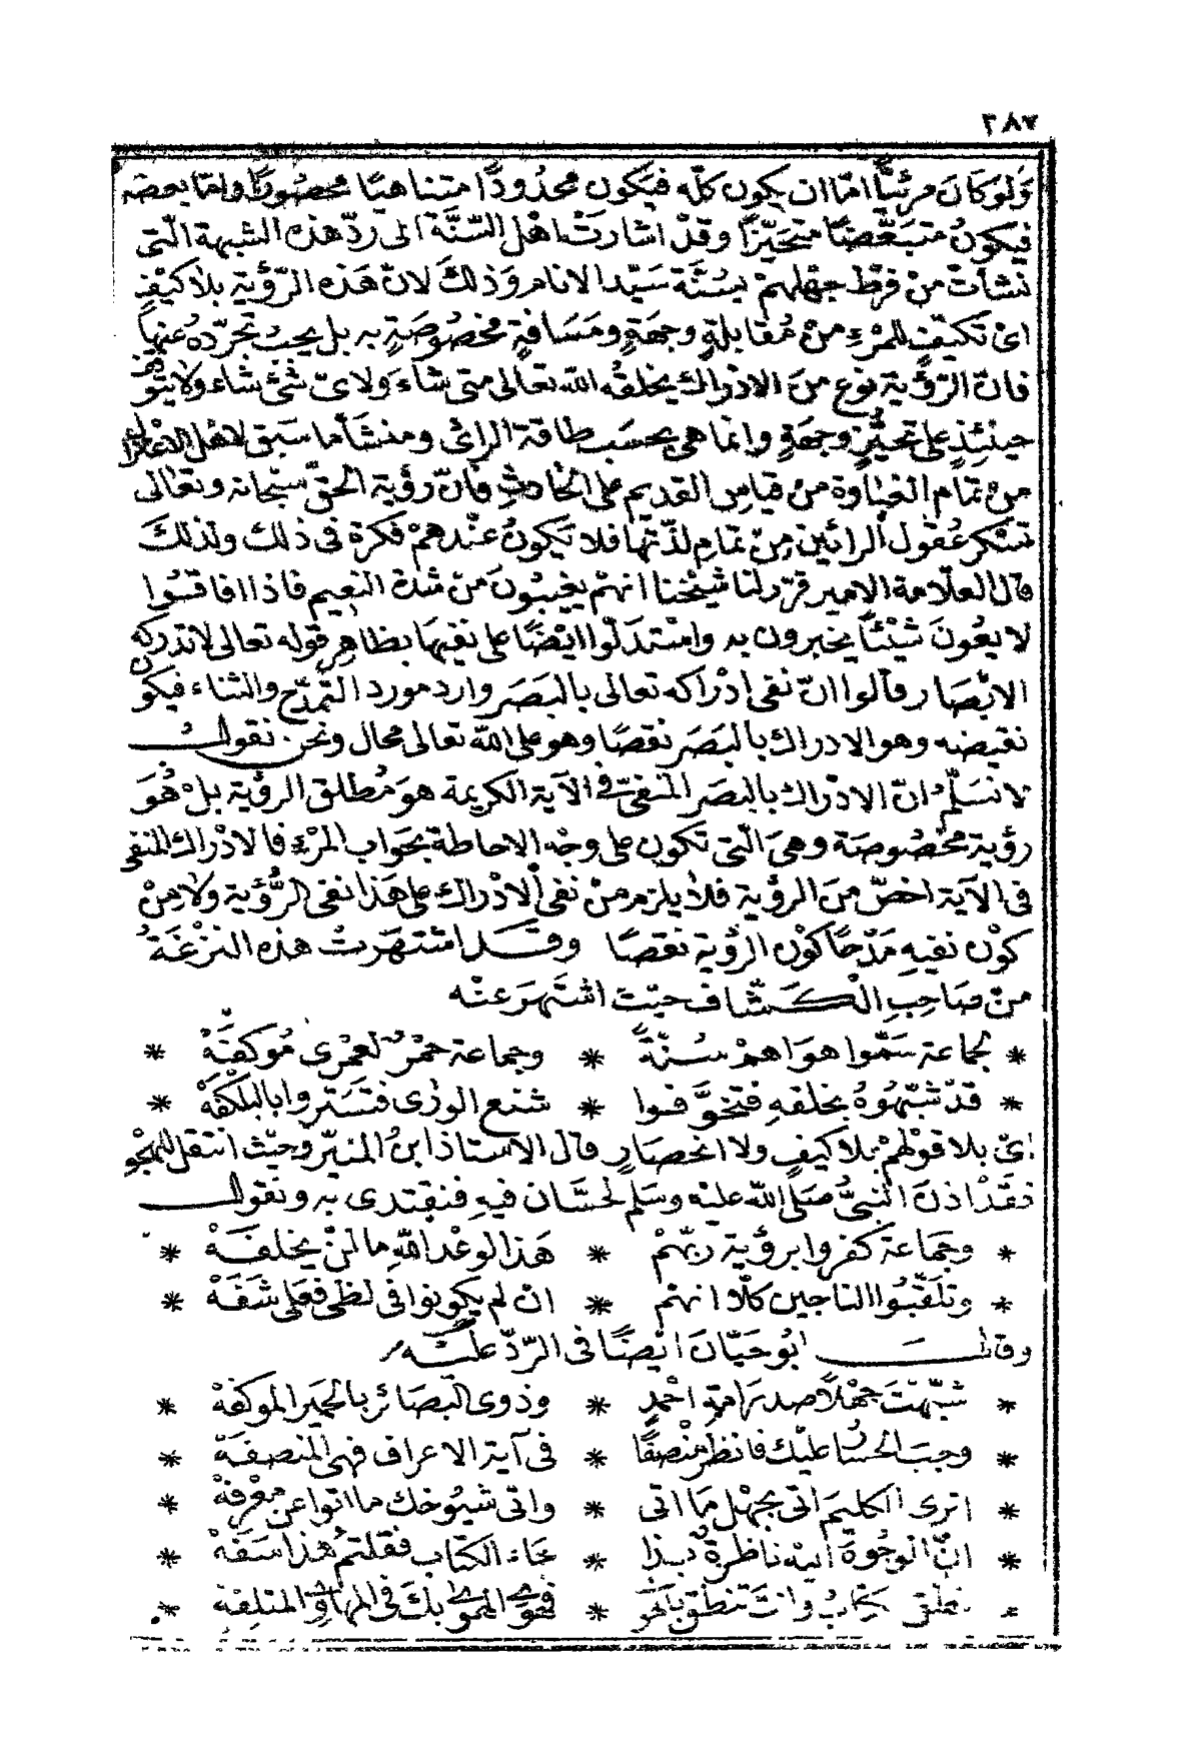 ٢٨٧
وَلَو كَانَ مرئيًّا امّا ان يكون كلّه فيَكون محدُودًا متناهيًا محصُورًا وامّا بعضه
فيكونُ متبَعّضًا متحَيّزًا وقدْ اشارَتْ اهْل السّنَّة الى ردّ هذه الشبهة الّتى
نشأتْ منْ فرْط جهْلهمْ بسُنَّة سَيّد الانام وَذلكَ لانّ هَذه الرّؤية بلا كيْفٍ
اىْ تكيّفٍ للمرْءِ منْ مُقابلةٍ وجهَةٍ ومَسَافةٍ مخصُوصَةٍ به بل يجبُ تجرّدهُ عنهَا
فانّ الرّؤية نوع منَ الادْراك يخلقُه الله تعالى متى شَاءَ ولاىّ شئْ شاء ولا يتوقف
حينئِذٍ على تحيُّزٍ وجهَةٍ وانّما هى بحسَب طاقة الرائى ومنشَأ ما سَبق لاهْل الاعتزال
منْ تمَام الغبَاوة منْ قيَاس القديم على الحَادثِ فانّ رؤية الحقّ سبْحانه وتعَالى
تسْكر عُقول الرائين منْ تمَامِ لذّتهَا فلا تكونُ عنْدهمْ فكرَة فى ذلك ولذلكَ
قال العلّامة الامير قرّر لنا شيْخنا انهمْ يغيبُونَ منْ شدّة النعيم فاذا افاقُوا
لا يعُونَ شيْئًا يخبرون به واسْتدَلّوا ايْضًا على نفيهَا بظاهرِ قوله تعالى لا تدركه
الابْصَار وقالوا انّ نفى ادْراكه تعالى بالبَصَر وارد مورد التّمدّح والثناء فيكون
نقيضه وهو الادراك بالبَصَر نقصًا وهو على الله تعالى محال ونحن نقول
لا نسَلّم انّ الادْراك بالبصَر المنفىّ فى الآية الكريمة هوَ مُطلق الرؤية بلْ هُوَ
رؤية مخصُوصَة وهىَ الّتى تكون على وجْه الاحاطة بجَوانب المرْءِ فالادْراك المنفى
فى الآية اخصّ منَ الرؤية فلا يلزم منْ نفى الادْراك على هَذا نفى الرُّؤية ولا منْ
كوْن نفيهِ مَدْحًا كوْن الرؤية نقصًا وقد اشتهَرتْ هذه النزْغَةُ
منْ صَاحبِ الْكَشّاف حيْث اشتَهرَ عنْه
* لجماعة سَمّوا هوَاهمْ سُنّةً * وجماعة حمْرٌ لعمْرى مُوكفَهْ *
* قدْ شبّهُوهُ بخلقهِ فتخوَّفوا * شنَع الورَى فتسَتروا بالبَلْكفهْ *
اىْ بلا قوْلهمْ بلا كيفٍ ولا انحصَارٍ قال الاسْتاذ ابنُ المنَيّر وحيْث انتقل للهجْو
فقَدْ اذنَ النّبىُّ صَلّى اللّه عليْه وسَلم لحسَّان فيهِ فنقتدى به ونقول
* وجمَاعة كفروا برؤية ربّهمْ * هَذا لوعْد اللّهِ ما لنْ يخلفَهْ *
* وتلقّبُوا الناجين كلّا انهمْ * انْ لم يكونوا فى لظى فعَلى شَفَهْ *
وقال ابُو حَيّانَ ايْضًا فى الرّدّ عليْه
* شبّهْتَ جهْلاً صدرَ امّةِ احْمدٍ * وذوى البَصَائر بالحَميرِ الموكفهْ *
* وجبَ الخسَارُ عليْك فانظرْ منْصفًا * فى آية الاعراف فهىَ المنصفَهْ *
* اترى الكليمَ اتى بجهْلٍ مَا اتى * واتى شيُوخك ما اتوا عنْ معْرفهْ *
* انّ الوجُوهَ اليْه ناظرةٌ بذا * جاءَ الكتَاب فقلتمُ هَذا سَفَهْ *
* نطق كتابُ وانتَ تنطق بالهَوى * فهوَى الهوى بكَ فى المهَاوى المتلفَهْ *